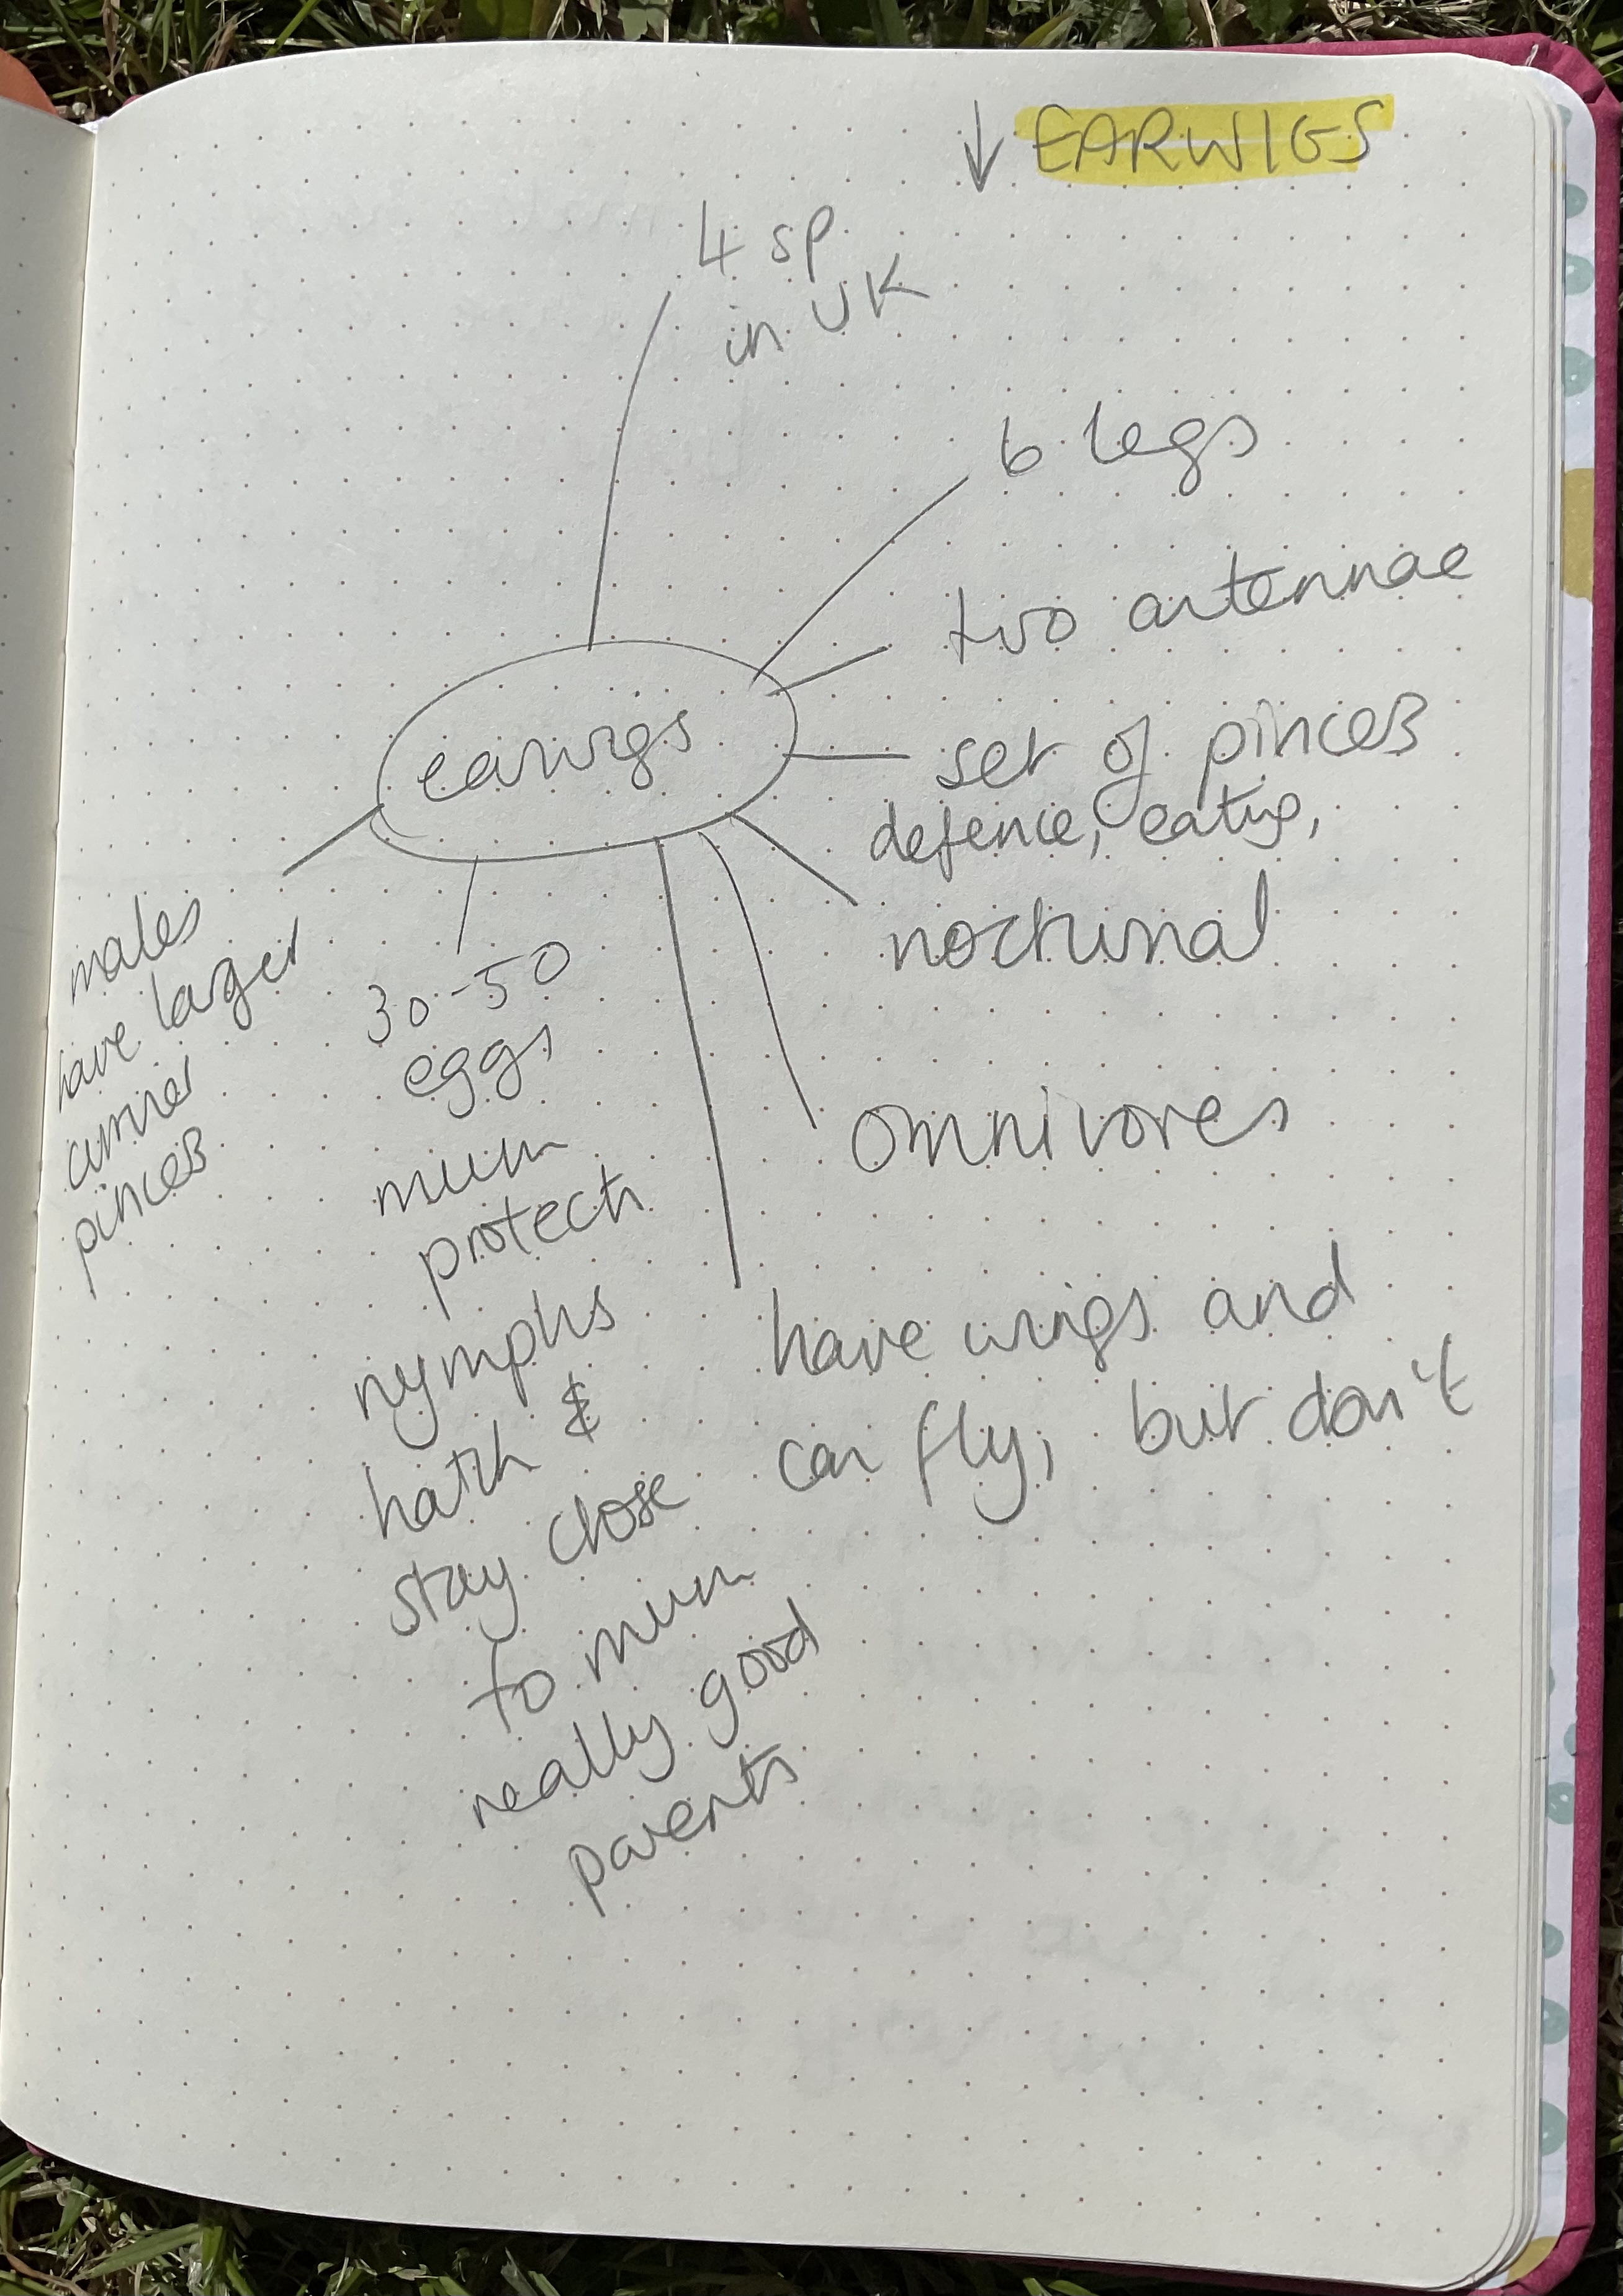 ↓ EARWIGS
4 sp
in UK
6 legs
two antennae
set of pincers
defence, eating,
nocturnal
omnivores
have wings and
can fly, but don't
earwigs
30-50
eggs
mum
protects
nymphs
hatch &
stay close
to mum
really good
parents
males
have larger
curvier
pincers